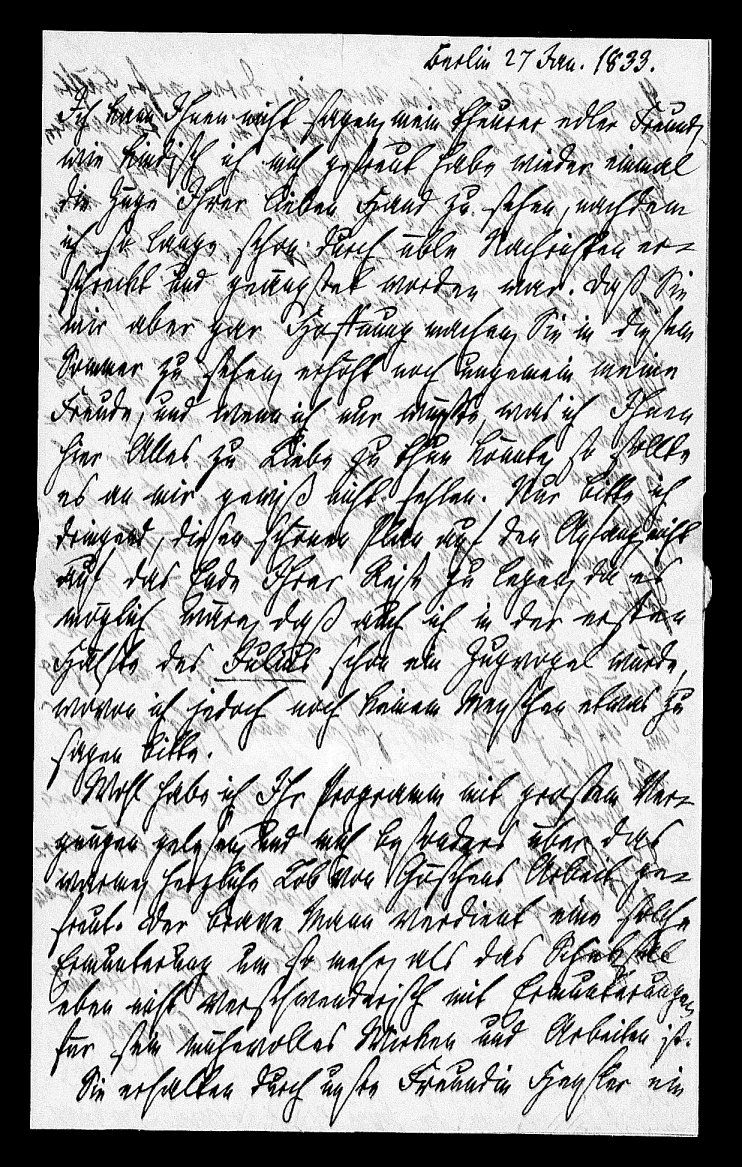 Berlin 27 Jan. 1833.
Ich kann Ihnen nicht sagen, mein theurer edler Freund,
wie kindisch ich mich gefreut habe wieder einmal
die Züge Ihrer lieben Hand zu sehen, nachdem
ich so lange schon durch üble Nachrichten er-
schreckt und geängstet worden war. Daß Sie
mir aber gar Hoffnung machen, Sie in diesem
Sommer zu sehen, erhöht noch ungemein meine
Freude, und wenn ich nur wüßte, was ich Ihnen
hier Alles zu Liebe zu thun könnte, so sollte
es an mir gewiß nicht fehlen. Nur bitte ich
dringend, diesen schönen Plan auf den Anfang, nicht
auf das Ende Ihrer Reise zu legen, da es
möglich wäre, daß auch ich in der ersten
Hälfte des Julius schon ein Zugvogel würde,
wovon ich jedoch noch keinem Menschen etwas zu
sagen bitte.
Wohl habe ich Ihr Programm mit großem Ver-
gnügen gelesen, und mich besonders über das
warme, herzliche Lob von Göschens Arbeit ge-
freut. Der brave Mann verdient eine solche
Ermunterung um so mehr, als das Schicksal
eben nicht verschwenderisch mit Ermunterungen
für sein mühevolles Wirken und Arbeiten ist.
Sie erhalten durch unsre Freundin Hensler ein